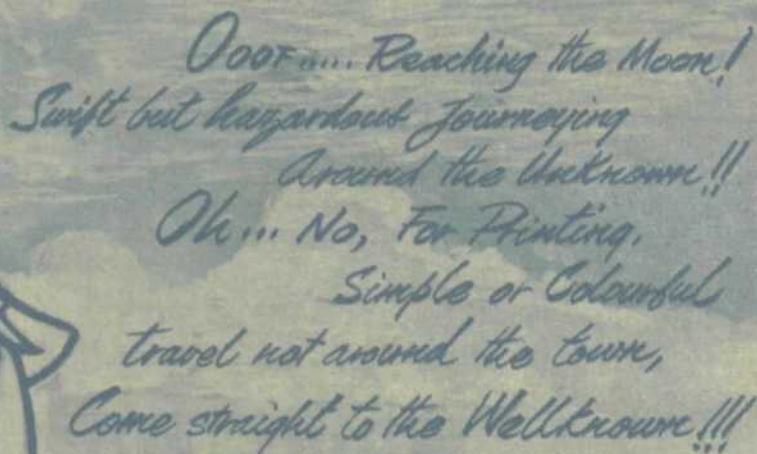 Ooof..... Reaching the Moon!
Swift but hazardous Journeying
Around the Unknown!!
Oh... No, For Printing,
Simple or Colourful
travel not around the town,
Come straight to the Wellknown!!!